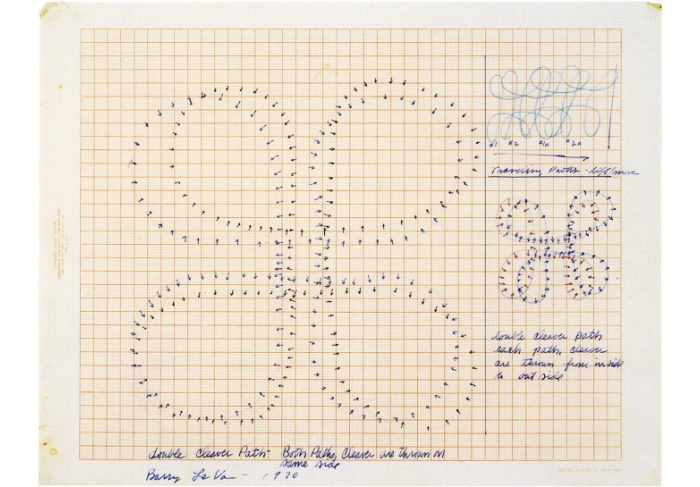 #1 #2 #1A #2A
Traveling Paths - left/move
double cleaver path
each path, cleaver
are thrown from inside
to out side
double cleaver Path - Both Paths, Cleaver are thrown on
same side
Barry Le Va - 1970